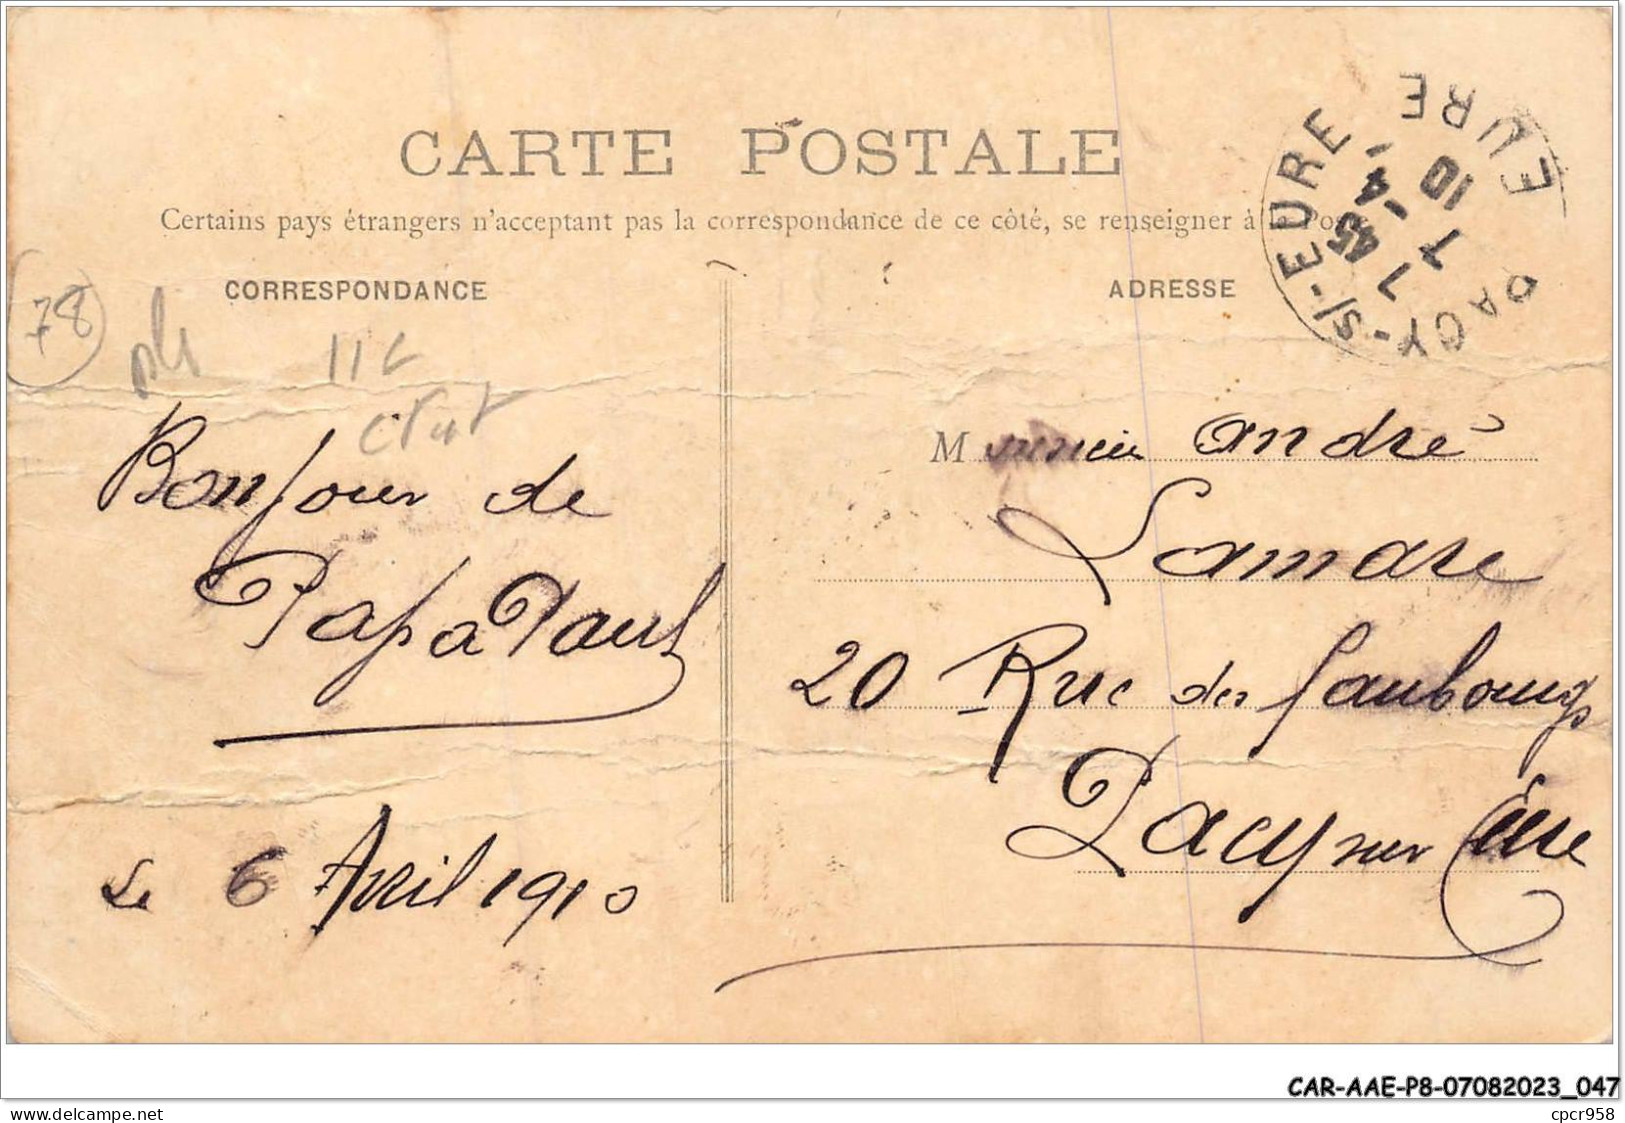 CARTE POSTALE
Certains pays étrangers n'acceptent pas la correspondance de ce côté, se renseigner à la Poste
CORRESPONDANCE
ADRESSE
PACY-S/-EURE
EURE
7 45
7-4
10
78
11c
Bonjour de
Papa Paul
Le 6 Avril 1910
Monsieur André
Lamare
20 Rue des faubourgs
Pacy sur Eure
CAR-AAE-P8-07082023_047
www.delcampe.net
cpcr958